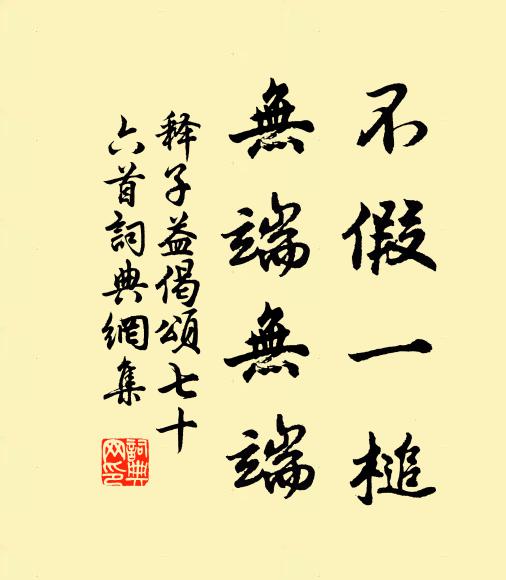 不假一槌
無端無端
釋子益偈頌七十
六首詞典網集
詞典
网印